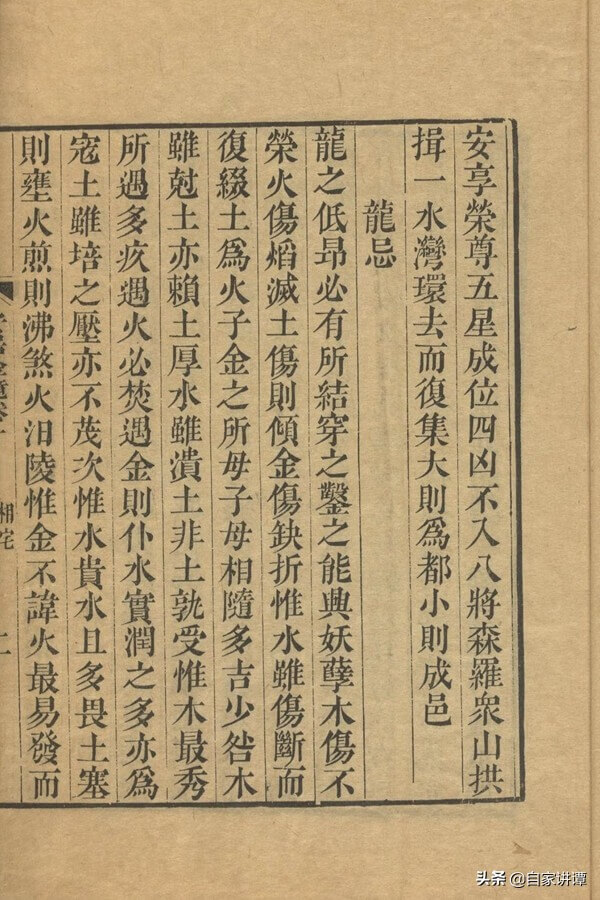 安享榮尊五星成位四凶不入八將森羅衆山拱
揖一水灣環去而復集大則爲都小則成邑
龍忌
龍之低昂必有所結穿之鑿之能興妖孽木傷不
榮火傷熖滅土傷則傾金傷缺折惟水雖傷斷而
復綴土爲火子金之所母子母相隨多吉少咎木
雖尅土亦賴土厚水雖潰土非土孰受惟木最秀
所遇多疚遇火必焚遇金則仆水實潤之多亦爲
宼土雖培之壓亦不茂次惟水貴水且多畏土塞
則壅火煎則沸煞火汨陵惟金不諱火最易發而
相宅
頭条 @自家讲谭